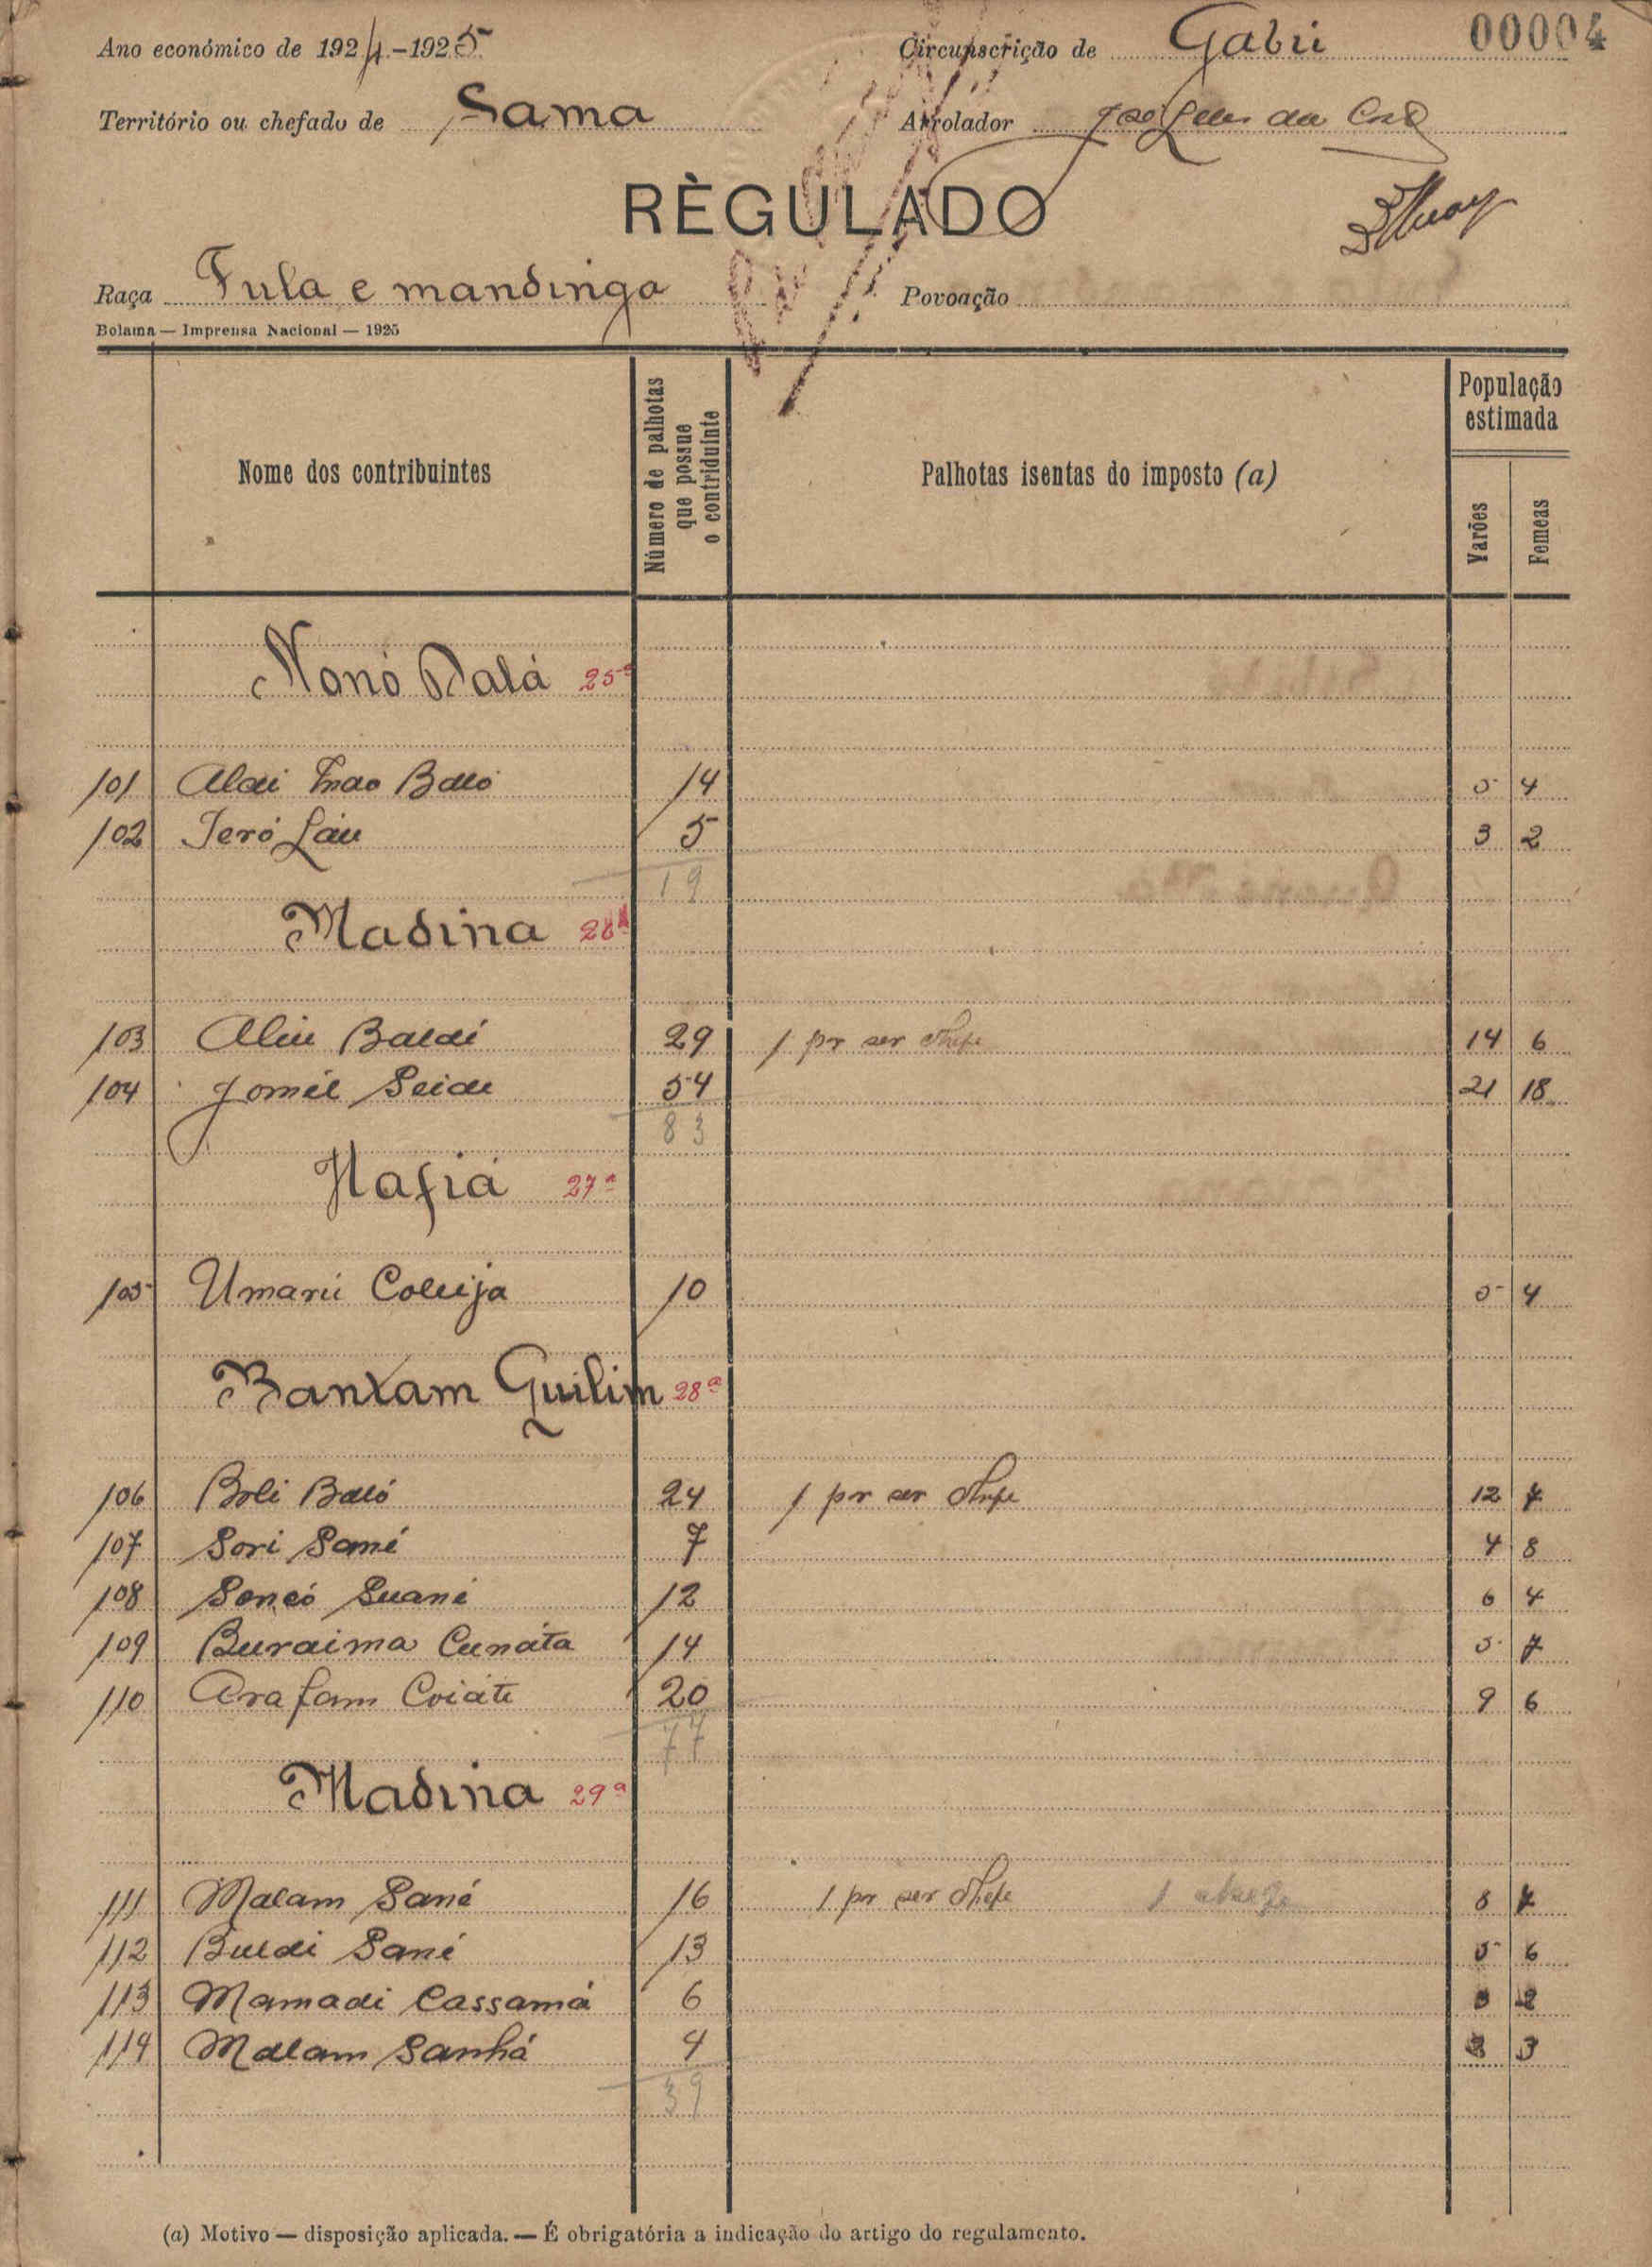 Ano económico de 1924-1925
Circunscrição de Gabú
00004
Território ou chefado de Sama
Arrolador
RÈGULADO
Raça Fula e mandinga
Povoação
Bolama — Imprensa Nacional — 1925
Nome dos contribuintes
Número de palhotas que possue o contriduinte
Palhotas isentas do imposto (a)
População estimada
Varões
Femeas
Nonó Dalá 25ª
101 Aldi Baló 14 5 4
102 Jeró Láu 5 3 2
19
Madina
103 Aliu Baldé 29 1 por ser chefe 14 6
104 Jomél Seidi 54 21 18
83
Hafiá 27ª
105 Umarú Coluija 10 5 4
Banxam Guilim 28ª
106 Boli Baló 24 1 por ser chefe 12 7
107 Sori Sané 7 4 8
108 Soncó Suané 12 6 4
109 Buraima Cunáta 14 5 7
110 Arafam Coiáte 20 9 6
77
Madina 29ª
111 Malam Sané 16 1 por ser chefe 1 8 7
112 Buldi Sané 13 5 6
113 Mamadi Cassamá 6 3 2
114 Malam Sanhá 4 3
39
(a) Motivo — disposição aplicada. — É obrigatória a indicação do artigo do regulamento.